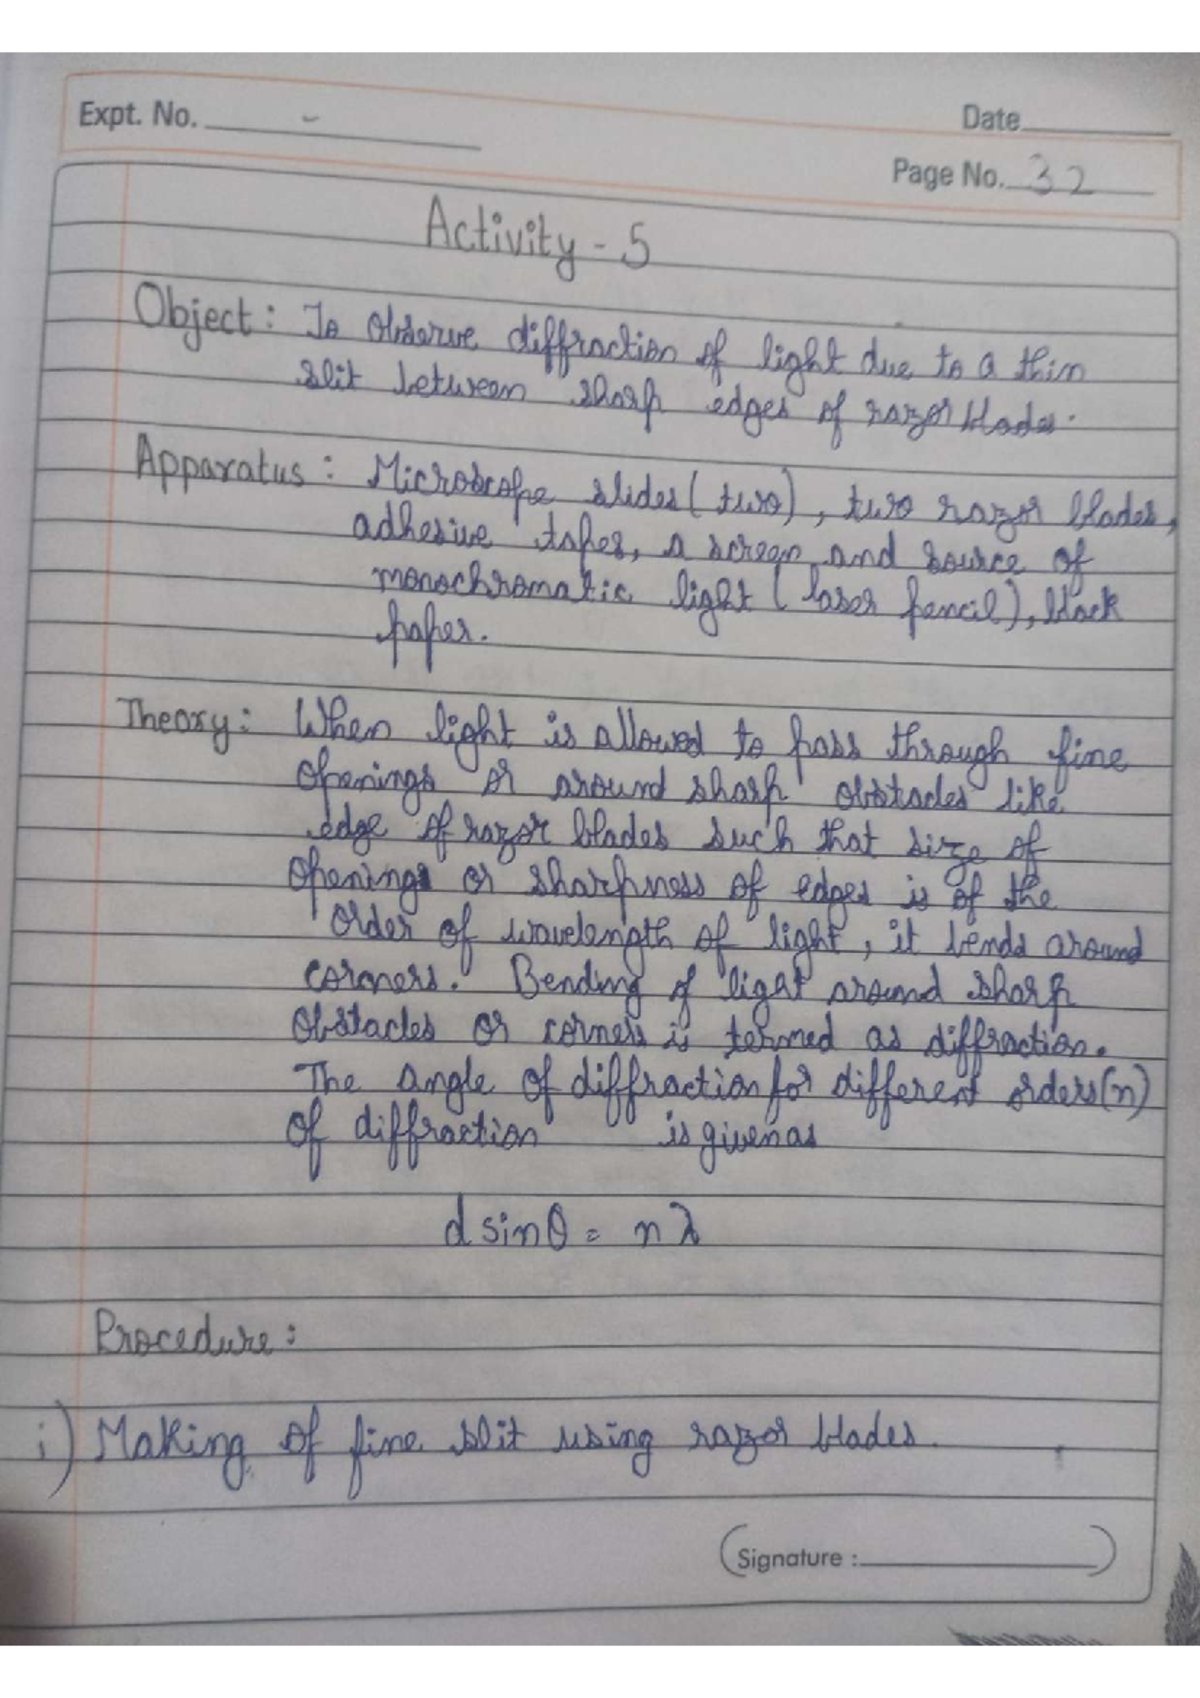 Expt. No. -
Date
Page No. 32
Activity - 5
Object : To observe diffraction of light due to a thin
slit between sharp edges of razor blades.
Apparatus : Microscope slides (two), two razor blades,
adhesive tapes, a screen and source of
monochromatic light (laser pencil), black
paper.
Theory : When light is allowed to pass through fine
openings or around sharp obstacles like
edge of razor blades such that size of
openings or sharpness of edges is of the
order of wavelength of light, it bends around
corners. Bending of light around sharp
obstacles or corners is termed as diffraction.
The angle of diffraction for different orders (n)
of diffraction is given as
d sin θ = n λ
Procedure :
i) Making of fine slit using razor blades.
(Signature : )